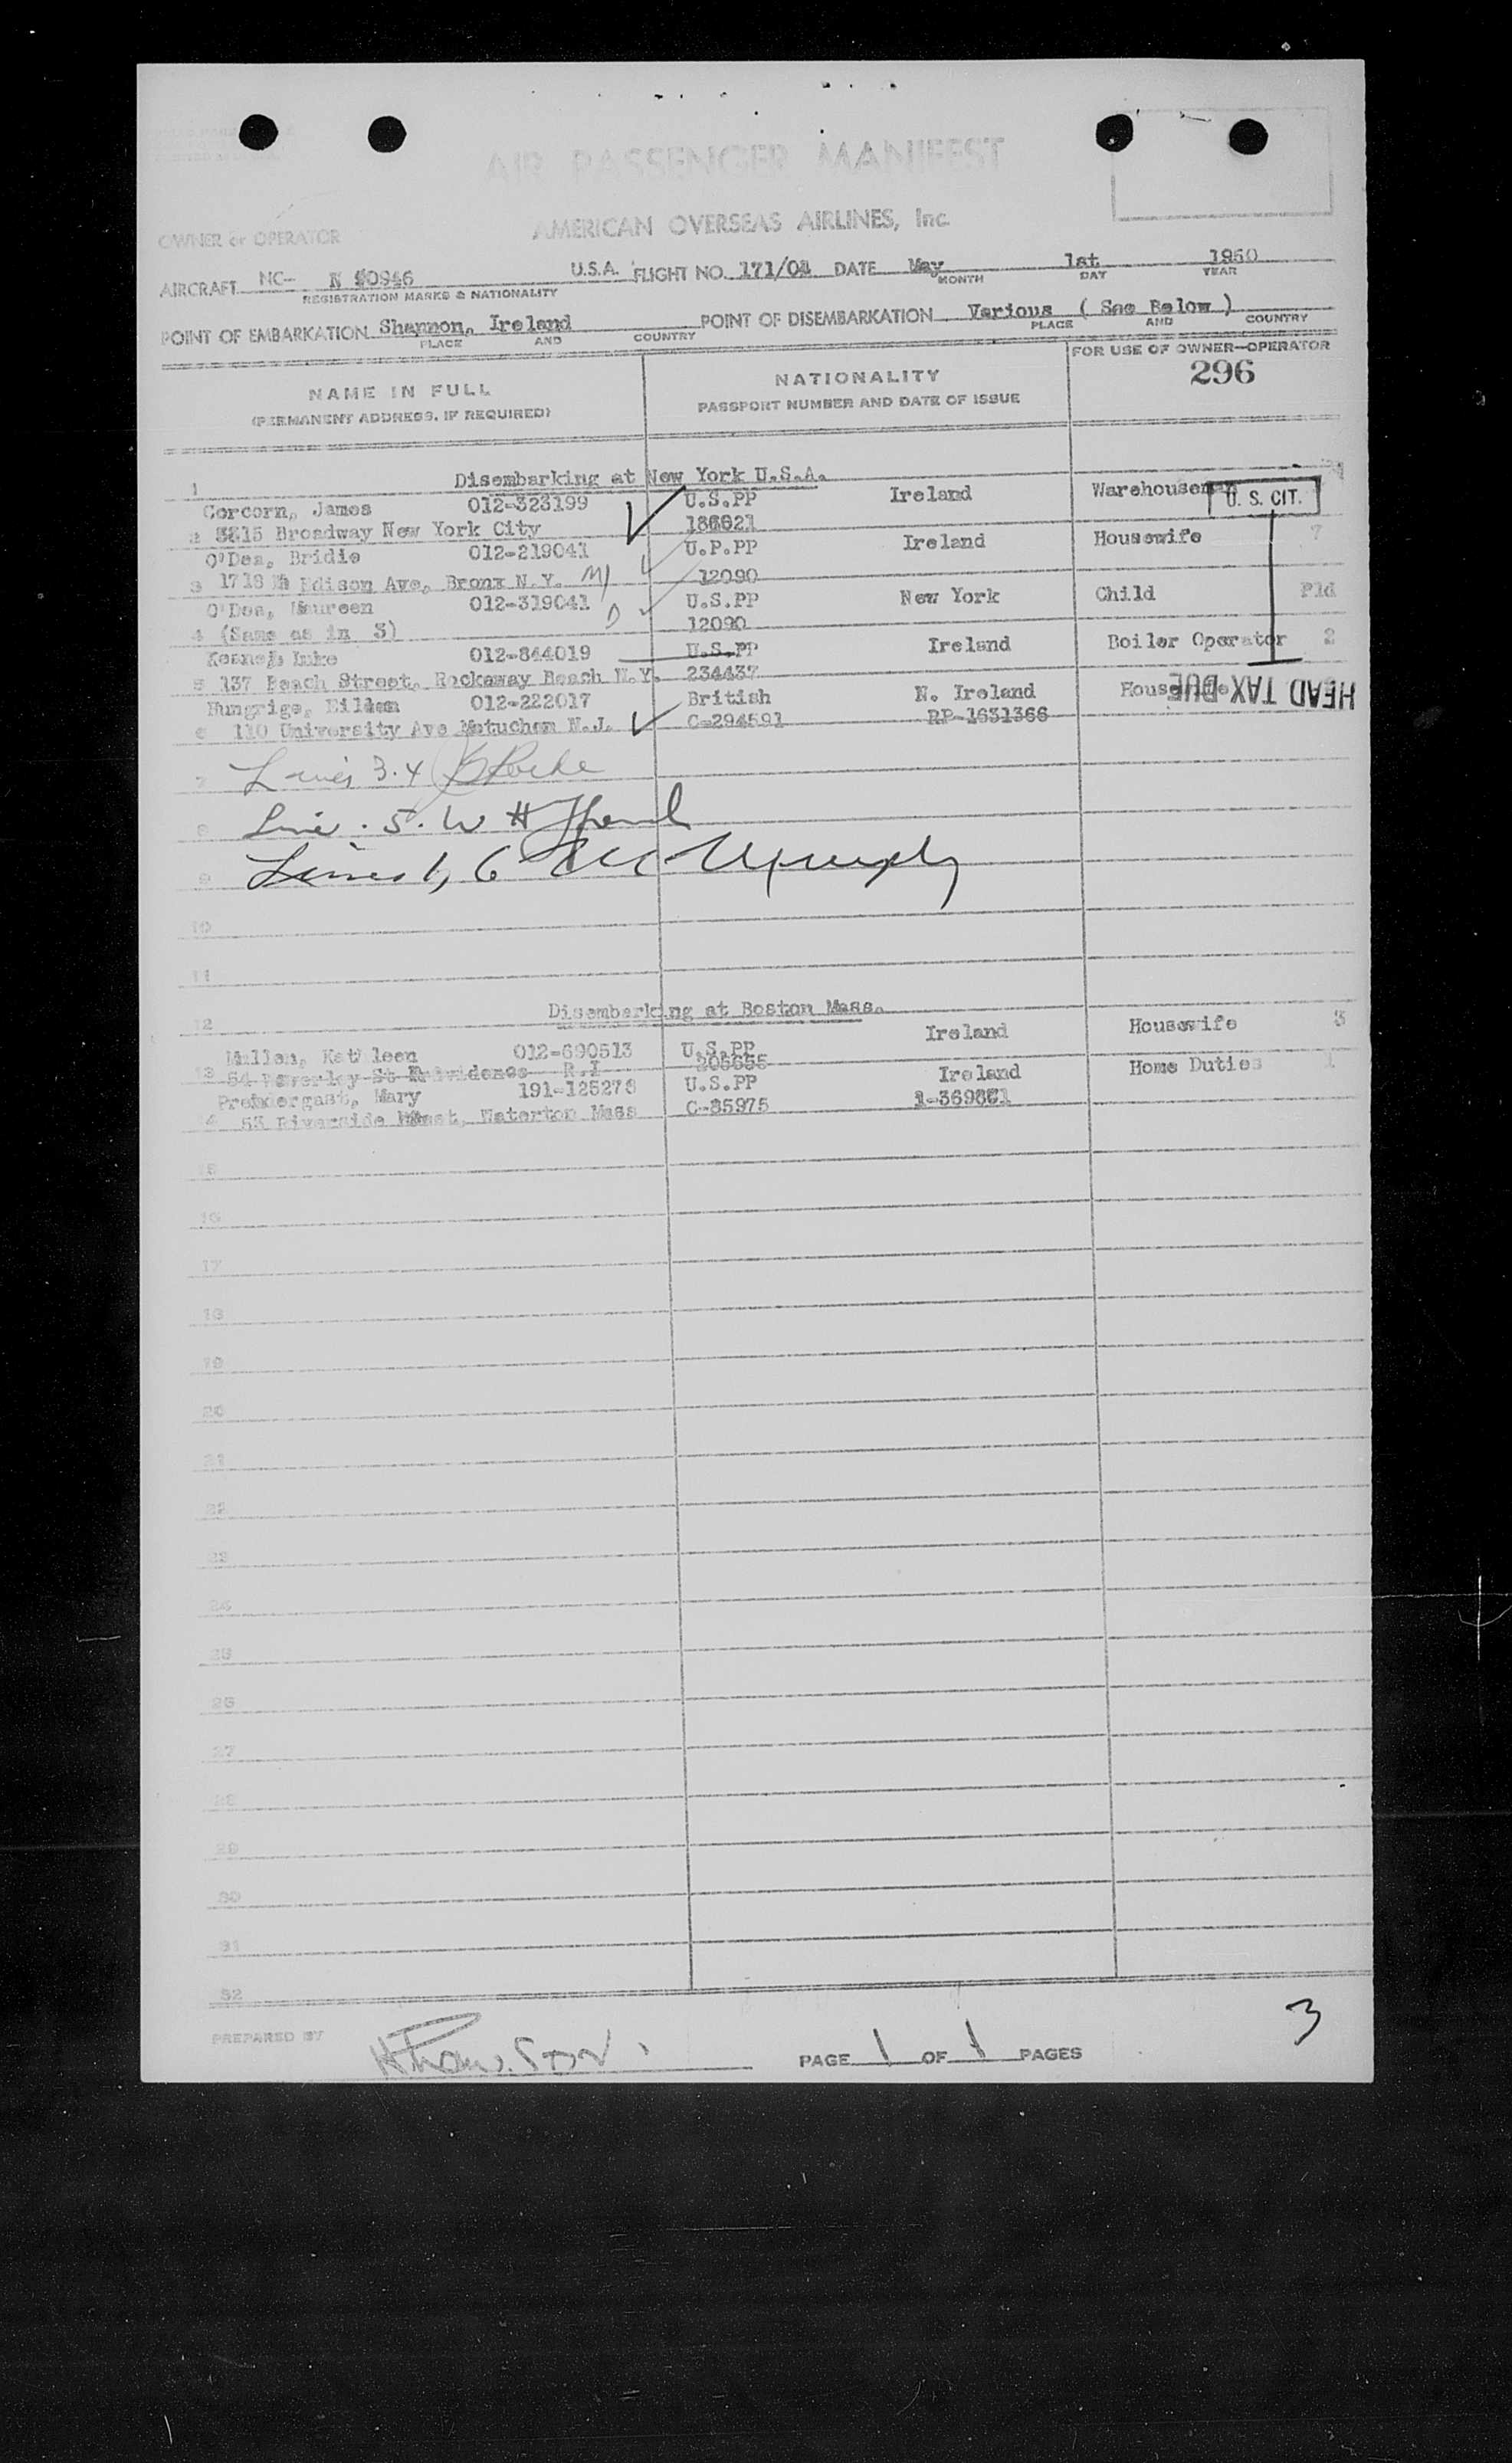 AIR PASSENGER MANIFEST
AMERICAN OVERSEAS AIRLINES, Inc.
OWNER or OPERATOR
AIRCRAFT NC- N 90946 U.S.A. FLIGHT NO. 171/01 DATE May 1st 1950
REGISTRATION MARKS & NATIONALITY MONTH DAY YEAR
POINT OF EMBARKATION Shannon, Ireland POINT OF DISEMBARKATION Various ( See Below )
PLACE AND COUNTRY PLACE AND COUNTRY
FOR USE OF OWNER-OPERATOR
NAME IN FULL NATIONALITY 296
(PERMANENT ADDRESS, IF REQUIRED) PASSPORT NUMBER AND DATE OF ISSUE
1 Disembarking at New York U.S.A.
Corcorn, James 012-323199 U.S.PP Ireland Warehouseman U. S. CIT.
2 Broadway New York City
O'Dea, Bridie 012-219041 U.P.PP Ireland Housewife 7
3 1718 Edison Ave, Bronx N.Y. 12090
O'Dea, Maureen 012-319041 U.S.PP New York Child Pld
4 (Same as in 3) 12090
Luke 012-844019 U.S.PP Ireland Boiler Operator 2
5 137 Beach Street, Rockaway Beach N.Y. 234437
Hungrige, Eileen 012-222017 British N. Ireland Housewife HEAD TAX DUE
6 110 University Ave Metuchem N.J. C-294591 RP-1631366
7 Lines 3.4
8 Line . 5. W H
9 Lines 1, 6
10
11
12 Disembarking at Boston Mass.
Millen, Kathleen 012-690513 U.S.PP Ireland Housewife 3
13 54 Beverley St Providence R.I 205655
Prendergast, Mary 191-125278 U.S.PP Ireland Home Duties 1
4 53 Riverside, Waterton Mass C-85975
15
16
17
18
19
20
21
22
23
24
25
26
27
28
29
30
31
32
PREPARED BY PAGE 1 OF 1 PAGES
3